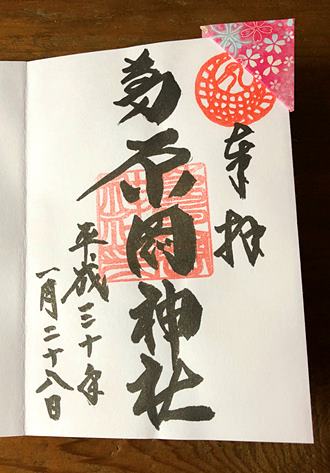 奉拝
葛原岡神社
平成三十年
一月二十八日